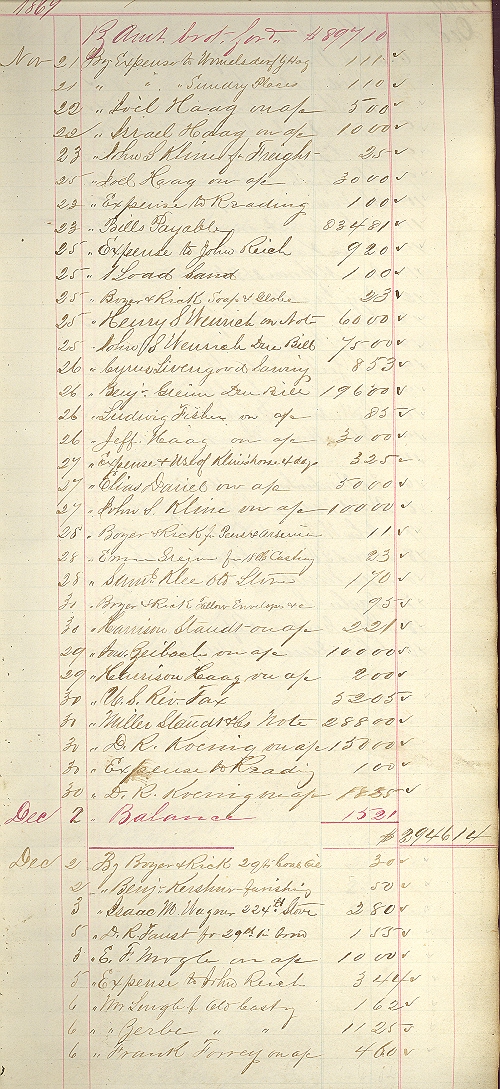 1869
By Amt. brot-ford. $897 10
Nov 21 By Expense to Womelsdorf 1 11
21 " " " Sundry Places 1 10
22 " Joel Haag on a/c 5 00
22 " Israel Haag on a/c 10 00
23 " John S Kline for Freight 25
25 " Joel Haag on a/c 30 00
23 " Expense to Reading 1 00
23 " Bills Payable 834 81
25 " Expense to John Reich 9 20
25 " 1 Load Sand 1 00
25 " Boyer & Rick Soap & Globe 23
25 " Henry S Wenrich on Note 60 00
25 " John S Wenrich Due Bill 75 00
26 " Cyrus Livengood Sawing 8 53
26 " Benj. Due Bill 196 00
26 " Ludwig Fisher on a/c 85
26 " Jeff. Haag on a/c 30 00
27 " Expense & Use of Klines horse 4 days 3 25
27 " Elias Daniel on a/c 50 00
27 " John S. Kline on a/c 100 00
28 " Boyer & Rick for & Arsenic 11
28 " for 18 lb Casting 23
28 " Saml Klee Old Stove 1 70
30 " Boyer & Rick Envelopes &c 95
30 " Harrison Staudt on a/c 2 21
29 " Jno. Zeibach on a/c 100 00
29 " Harrison Haag on a/c 2 00
30 " U.S. Rev. Tax 32 05
30 " Miller Staudt & Co Note 288 00
30 " D. R. Koenig on a/c 150 00
30 " Expense to Reading 1 00
30 " D. R. Koenig on a/c 18 85
Dec 2 " Balance 15 21
$2946 14
Dec 2 By Boyer & Rick 29 Coal Oil 30
2 " Benj. Kershner 50
3 " Isaac M. Wagner 224 lb Stove 2 80
5 " D. R. Faust for 29 lb 1 55
3 " E. F. Mogle on a/c 10 00
5 " Expense to John Reich 3 44
6 " Wm for Old Castg 1 62
6 " " Zerbe " " 11 25
6 " Frank Forrey on a/c 4 60